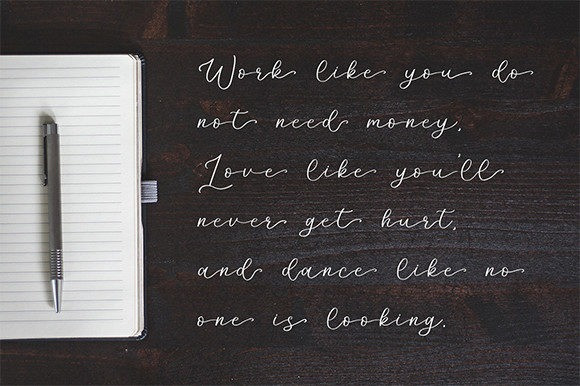 Work like you do
not need money,
Love like you'll
never get hurt,
and dance like no
one is looking.